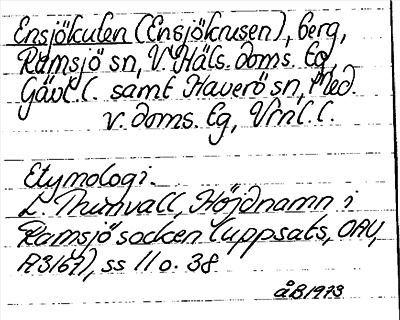 Ensjökulen (Ensjökrusen), berg,
Ramsjö sn, V. Häls. doms. lg
Gävl. l. samt Haverö sn, Med.
v. doms. lg, Vrnl. l.
Etymologi.
L. Thunvall, Höjdnamn i
Ramsjö socken (uppsats, OAU,
R3167), ss 11 o. 38
åB1973